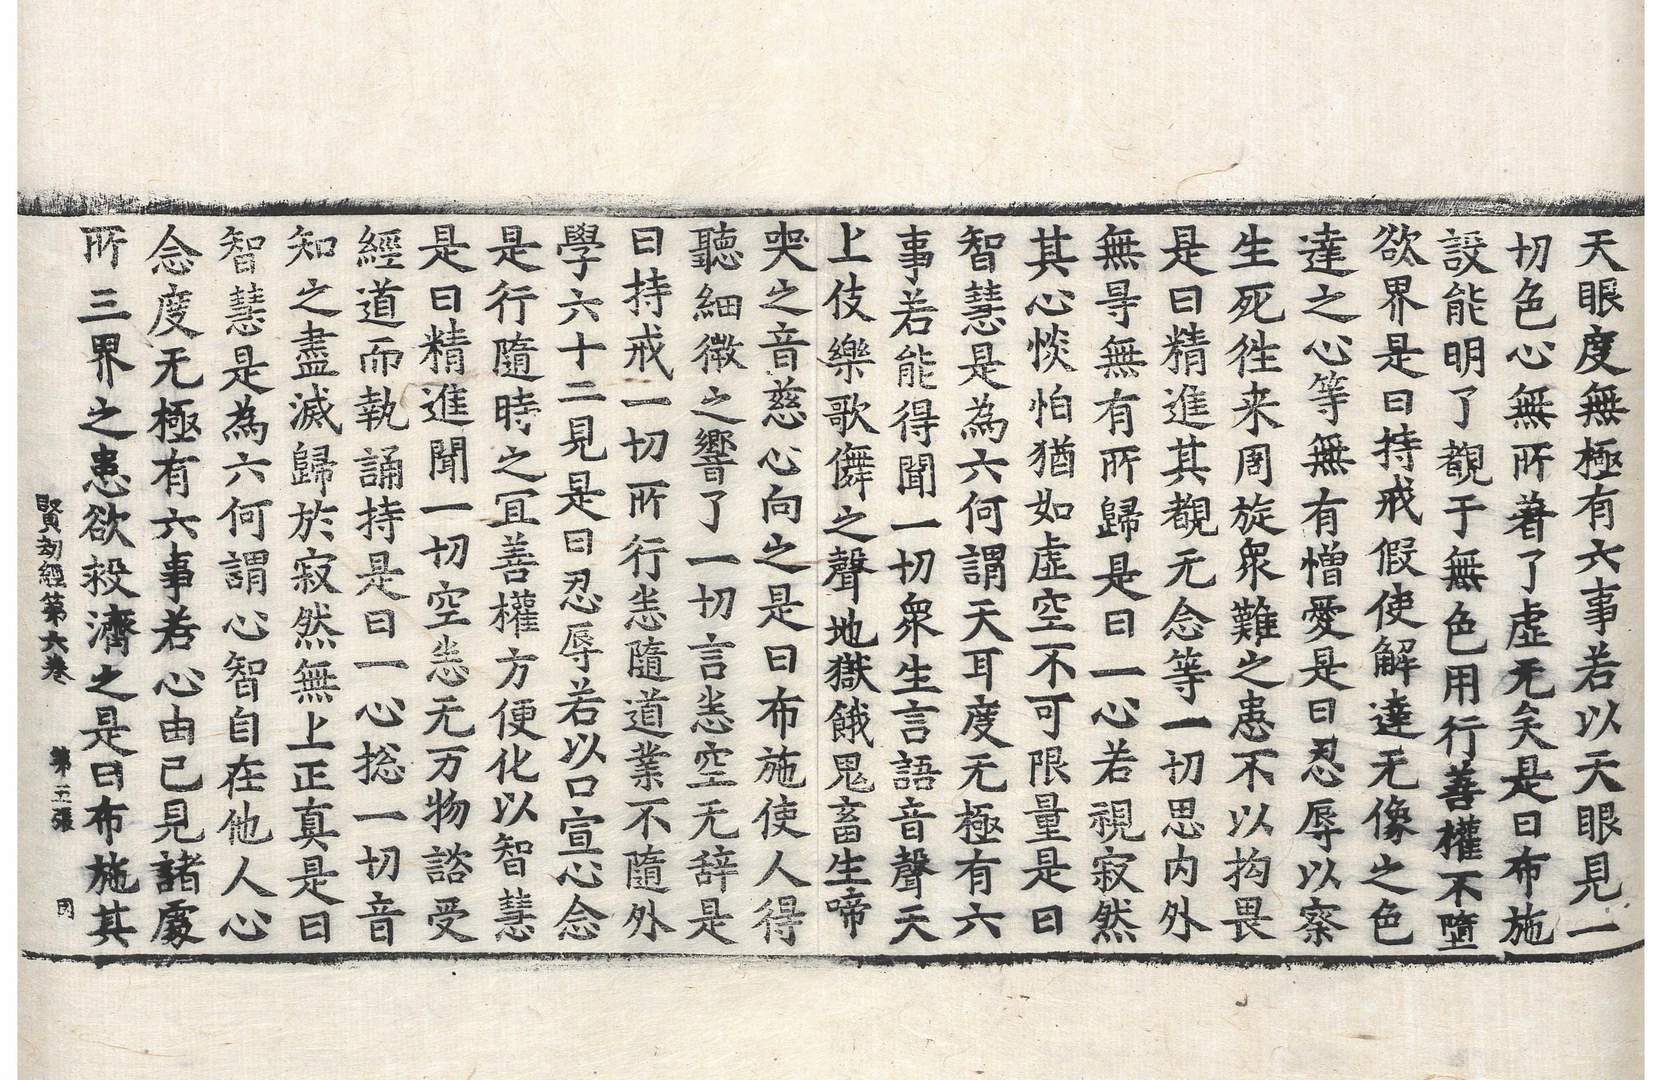 天眼度無極有六事若以天眼見一
切色心無所著了虛无矣是曰布施
設能明了覩于無色用行善權不墮
欲界是曰持戒假使解達无像之色
達之心等無有憎愛是曰忍辱以察
生死徃来周旋衆難之患不以拘畏
是曰精進其覩无念等一切思内外
無㝵無有所歸是曰一心若視寂然
其心惔怕猶如虛空不可限量是曰
智慧是為六何謂天耳度无極有六
事若能得聞一切衆生言語音聲天
上伎樂歌儛之聲地獄餓鬼畜生啼
哭之音慈心向之是曰布施使人得
聽細微之響了一切言恙空无辞是
曰持戒一切所行恙隨道業不隨外
學六十二見是曰忍辱若以口宣心念
是行隨時之冝善權方便化以智慧
是曰精進聞一切空恙无万物諮受
經道而執誦持是曰一心捴一切音
知之盡滅歸於寂然無上正真是曰
智慧是為六何謂心智自在他人心
念度无極有六事若心由已見諸處
所三界之患欲救濟之是曰布施其
賢劫經第六卷 第五張 罔